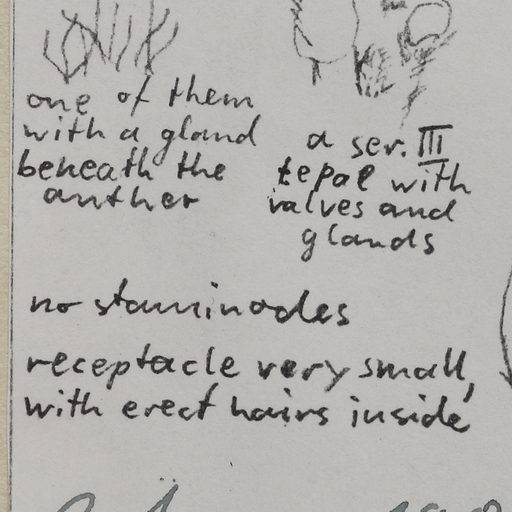 one of them
with a gland
beneath the
anther
a ser. III
tepal with
valves and
glands
no staminodes
receptacle very small,
with erect hairs inside